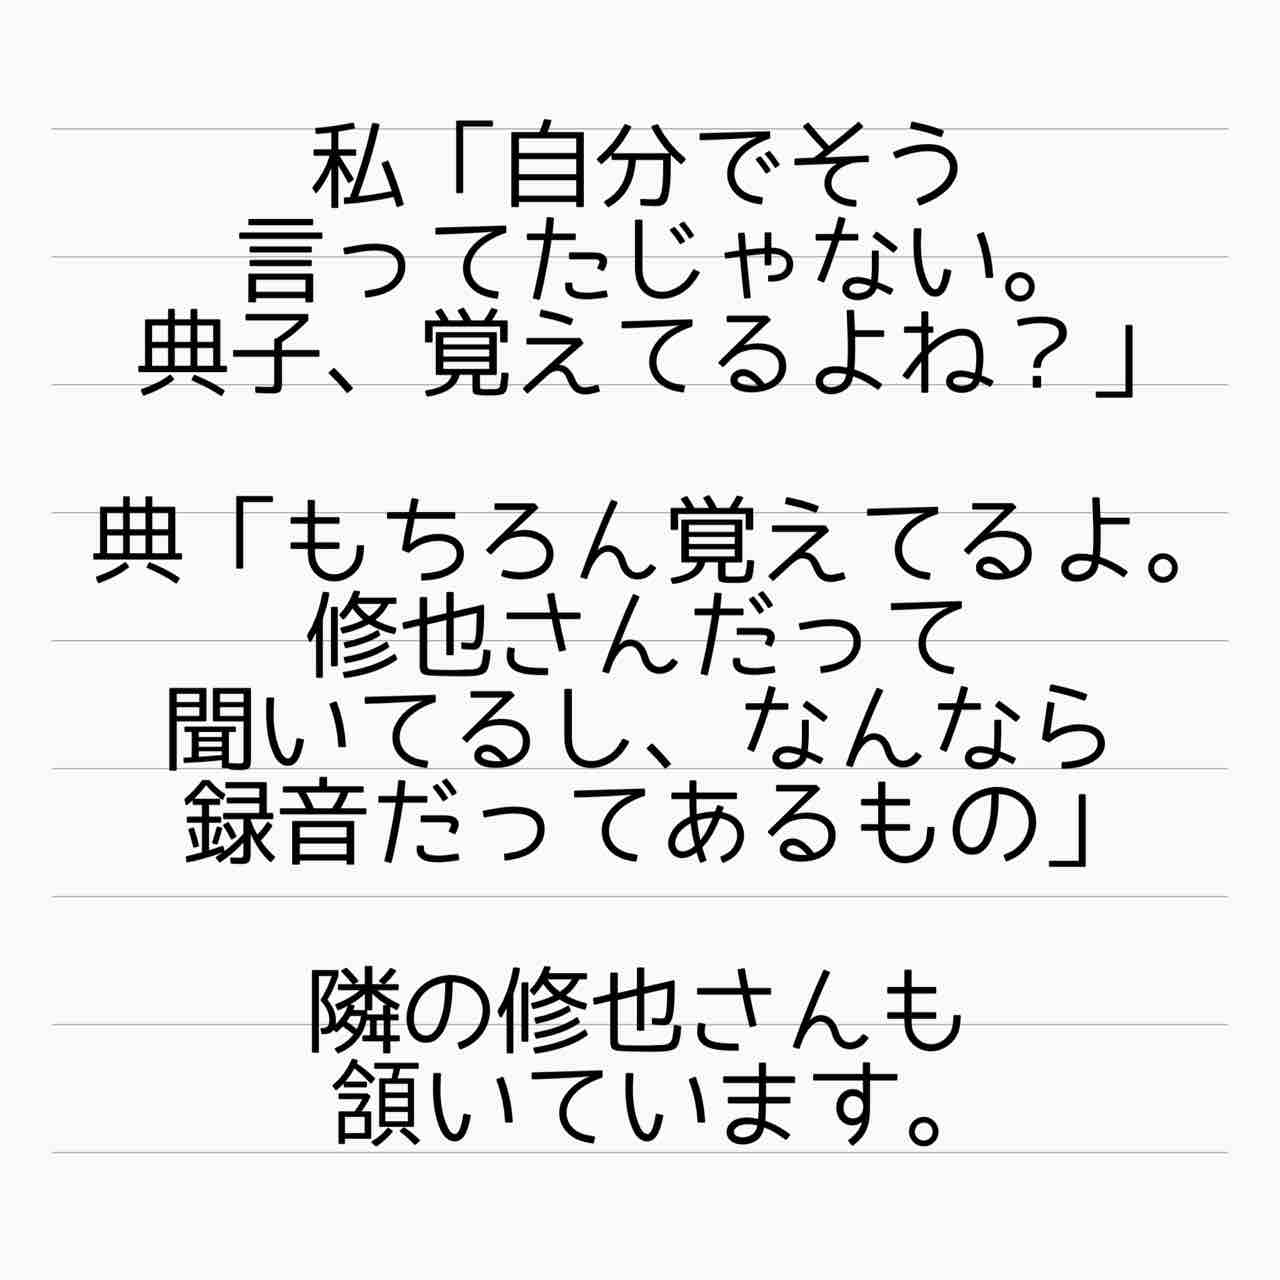 私「自分でそう
言ってたじゃない。
典子、覚えてるよね？」
典「もちろん覚えてるよ。
修也さんだって
聞いてるし、なんなら
録音だってあるもの」
隣の修也さんも
頷いています。